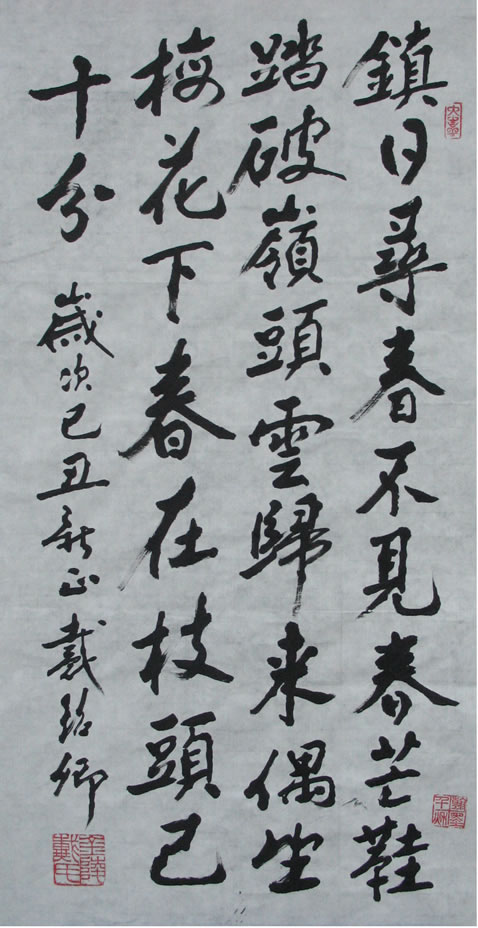 鎮日尋春不見春芒鞋
踏破嶺頭雲歸来偶坐
梅花下春在枝頭已
十分 歲次己丑新正戴卿